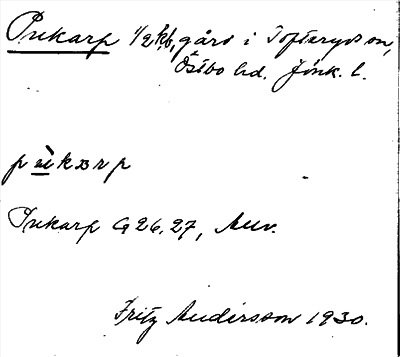 Pukarp 1/2 kb, gård i Tofteryd sn,
Östbo hd. Jönk. l.
Pukarp G 26, 27, Auv.
Fritz Andersson 1930.